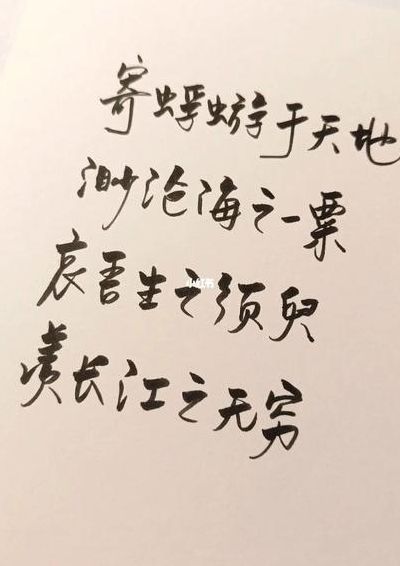 寄蜉蝣于天地
渺沧海之一粟
哀吾生之须臾
羡长江之无穷
小红书